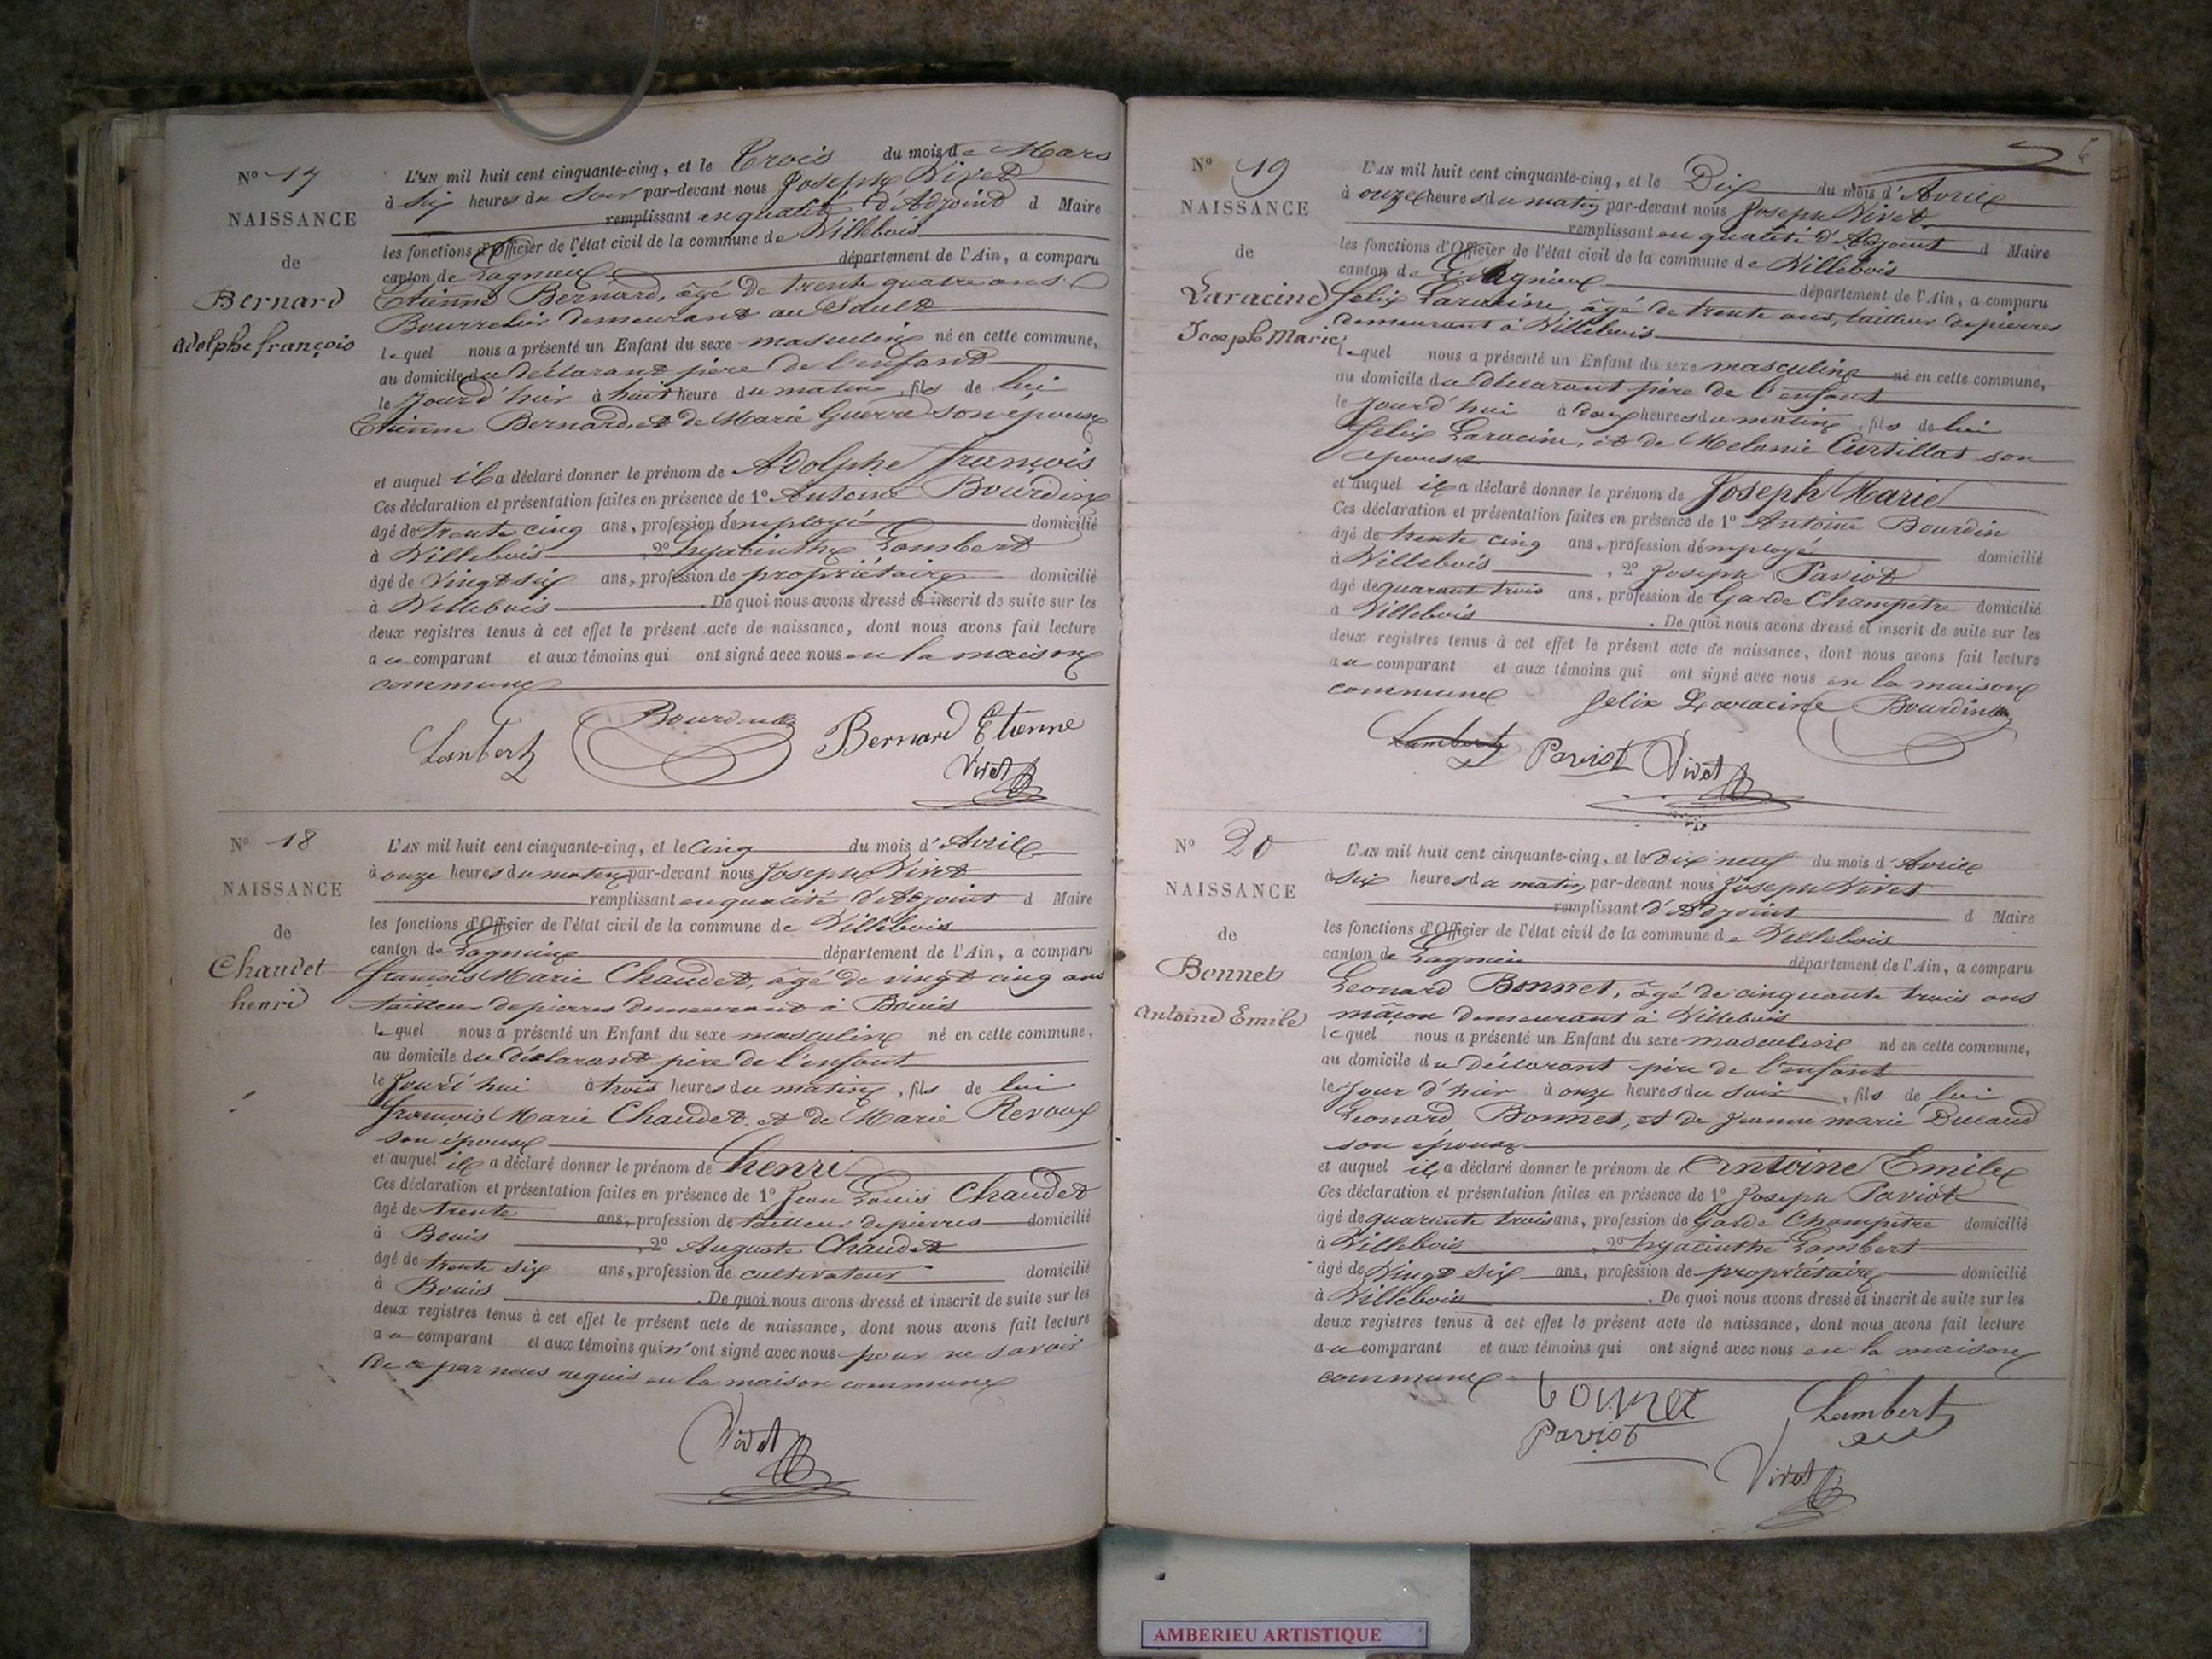 N° 17
NAISSANCE
de
Bernard
Adolphe françois
L'AN mil huit cent cinquante-cinq, et le Trois du mois de Mars
à Six heures du Soir par-devant nous Joseph Vivet
remplissant en qualité d'Adjoint d Maire
les fonctions d'Officier de l'état civil de la commune de Villebois
canton de Lagnieu département de l'Ain, a comparu
Etienne Bernard, âgé de trente quatre ans
Bourrelier demeurant au Sault
lequel nous a présenté un Enfant du sexe masculin né en cette commune,
au domicile du déclarant père de l'enfant
le Jourd'hier à huit heure du matin, fils de lui
Etienne Bernard, et de Marie Guerre son epouse
et auquel il a déclaré donner le prénom de Adolphe françois
Ces déclaration et présentation faites en présence de 1° Antoine Bourdin
âgé de trente cinq ans, profession d'employé domicilié
à Villebois, 2° hyacinthe Lambert
âgé de Vingt six ans, profession de propriétaire domicilié
à Villebois. De quoi nous avons dressé et inscrit de suite sur les
deux registres tenus à cet effet le présent acte de naissance, dont nous avons fait lecture
au comparant et aux témoins qui ont signé avec nous en la maison
commune
Lambert Bourdin Bernard Etienne
Vivet
N° 18
NAISSANCE
de
Chaudet
henri
L'AN mil huit cent cinquante-cinq, et le Cinq du mois d'Avril
à onze heures du matin par-devant nous Joseph Vivet
remplissant en qualité d'Adjoint d Maire
les fonctions d'Officier de l'état civil de la commune de Villebois
canton de Lagnieu département de l'Ain, a comparu
françois Marie Chaudet, âgé de vingt cinq ans
tailleur de pierres demeurant à Bouis
lequel nous a présenté un Enfant du sexe masculin né en cette commune,
au domicile du déclarant père de l'enfant
le Jourd'hui à trois heures du matin, fils de lui
françois Marie Chaudet, et de Marie Revoux
son épouse
et auquel il a déclaré donner le prénom de henri
Ces déclaration et présentation faites en présence de 1° Jean Louis Chaudet
âgé de trente ans, profession de tailleur de pierres domicilié
à Bouis, 2° Auguste Chaudet
âgé de trente six ans, profession de cultivateur domicilié
à Bouis. De quoi nous avons dressé et inscrit de suite sur les
deux registres tenus à cet effet le présent acte de naissance, dont nous avons fait lecture
au comparant et aux témoins qui n'ont signé avec nous pour ne savoir
de ce par nous requis en la maison commune
Vivet
6
N° 19
NAISSANCE
de
Laracine
Joseph Marie
L'AN mil huit cent cinquante-cinq, et le Dix du mois d'Avril
à onze heures du matin par-devant nous Joseph Vivet
remplissant en qualité d'Adjoint d Maire
les fonctions d'Officier de l'état civil de la commune de Villebois
canton de Lagnieu département de l'Ain, a comparu
felix Laracine, âgé de trente ans, tailleur de pierres
demeurant à Villebois
lequel nous a présenté un Enfant du sexe masculin né en cette commune,
au domicile du déclarant père de l'enfant
le Jourd'hui à deux heures du matin, fils de lui
felix Laracine, et de Melanie Curtillat son
epouse
et auquel il a déclaré donner le prénom de Joseph Marie
Ces déclaration et présentation faites en présence de 1° Antoine Bourdin
âgé de trente cinq ans, profession d'employé domicilié
à Villebois, 2° Joseph Paviot
âgé de quarante trois ans, profession de Garde Champetre domicilié
à Villebois. De quoi nous avons dressé et inscrit de suite sur les
deux registres tenus à cet effet le présent acte de naissance, dont nous avons fait lecture
au comparant et aux témoins qui ont signé avec nous en la maison
commune felix Laracine Bourdin
Lambert Paviot Vivet
N° 20
NAISSANCE
de
Bonnet
Antoine Emile
L'AN mil huit cent cinquante-cinq, et le dix neuf du mois d'Avril
à six heures du matin par-devant nous Joseph Vivet
remplissant d'Adjoint d Maire
les fonctions d'Officier de l'état civil de la commune de Villebois
canton de Lagnieu département de l'Ain, a comparu
Leonard Bonnet, âgé de cinquante trois ans
mâçon demeurant à Villebois
lequel nous a présenté un Enfant du sexe masculin né en cette commune,
au domicile du déclarant père de l'enfant
le Jour d'hier à onze heures du soir, fils de lui
Leonard Bonnet, et de Jeanne marie Ducaud
son epouse
et auquel il a déclaré donner le prénom de Antoine Emile
Ces déclaration et présentation faites en présence de 1° Joseph Paviot
âgé de quarante trois ans, profession de Garde Champêtre domicilié
à Villebois, 2° hyacinthe Lambert
âgé de Vingt six ans, profession de propriétaire domicilié
à Villebois. De quoi nous avons dressé et inscrit de suite sur les
deux registres tenus à cet effet le présent acte de naissance, dont nous avons fait lecture
au comparant et aux témoins qui ont signé avec nous en la maison
commune
bonnet Lambert
Paviot
Vivet
AMBERIEU ARTISTIQUE